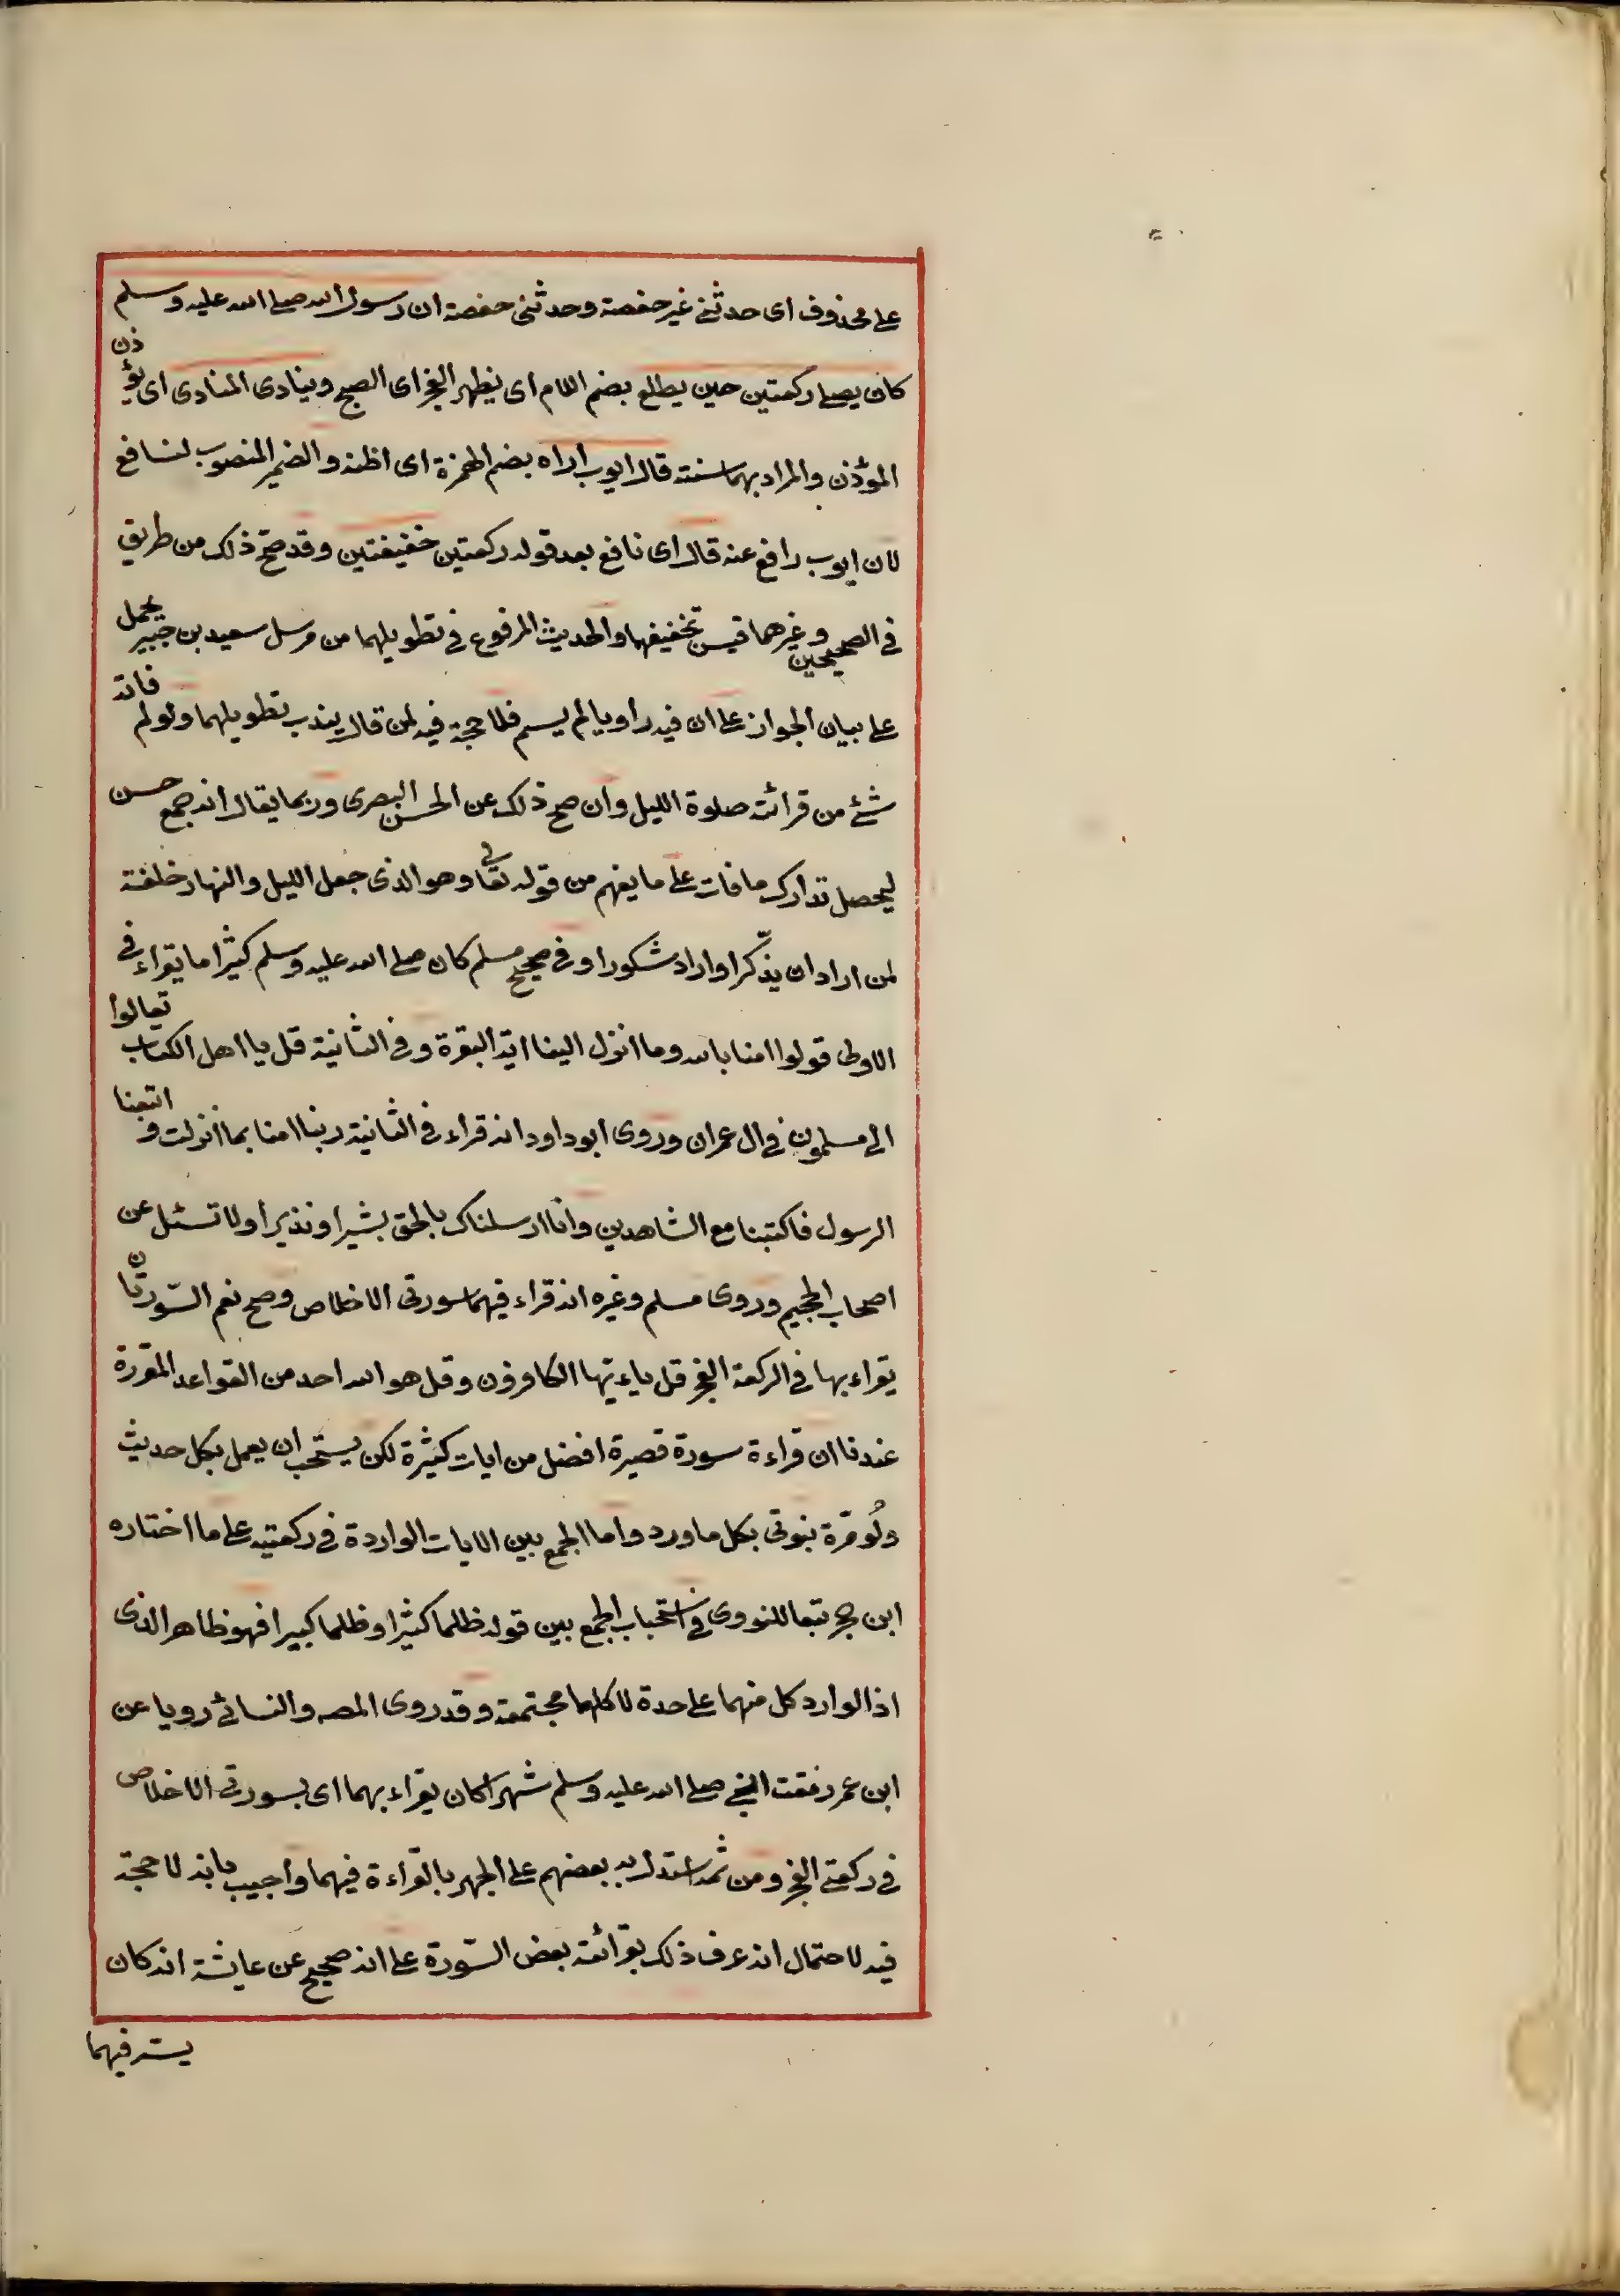 على محذوف اى حدثنى غير حفصة وحدثنى حفصة ان رسول الله صلى الله عليه وسلم
كان يصلى ركعتين حين يطلع بضم اللام اى يظهر الفجر اى الصبح وينادى المنادى اى يؤذن
المؤذن والمراد بهما سنته قال ايوب اراه بضم الهمزة اى اظنه والضمير المنصوب لنافع
لان ايوب رافع عنه قال اى نافع بعد قوله ركعتين خفيفتين وقد صح ذلك من طريق
فى الصحيحين وغيرهما فيسن تخفيفهما والحديث المرفوع فى تطويلهما من مرسل سعيد بن جبير يحمل
على بيان الجواز على ان فيه راويا لم يسم فلا حجة فيه لمن قال يندب تطويلهما ولو لم فاته
شئ من قرائته صلوة الليل وان صح ذلك عن الحسن البصرى وربما يقال انه جمع حسن
ليحصل تدارك ما فات على ما يفهم من قوله تعالى وهو الذى جعل الليل والنهار خلفة
لمن اراد ان يذّكر او اراد شكورا وفى صحيح مسلم كان صلى الله عليه وسلم كثيرا ما يقراء فى
الاولى قولوا امنا بالله وما انزل الينا اية البقرة وفى الثانية قل يا اهل الكتاب تعالوا
الى مسلمون فى ال عمران وروى ابو داود انه قراء فى الثانية ربنا امنا بما انزلت و اتبعنا
الرسول فاكتبنا مع الشاهدين وانا ارسلناك بالحق بشيرا ونذيرا ولا تسئل عن
اصحاب الجحيم وروى مسلم وغيره انه قراء فيهما سورتى الاخلاص وصح نعم السّورتان
يقراء بها فى الركعة الفجر قل ياءيّها الكافرون وقل هو الله احد من القواعد المقررة
عندنا ان قراءة سورة قصيرة افضل من ايات كثيرة لكن يستحب ان يعمل بكل حديث
ولو مرّة بكل ما ورد واما الجمع بين الايات الواردة فى ركعتيه على ما اختاره
ابن حجر تبعا للنووى فى استحباب الجمع بين قوله ظلما كثيرا وظلما كبيرا فهو ظاهر الذى
اذ الوارد كل منهما على حدة لا كلاهما مجتمعة وقد روى المصه والنسائى رويا عن
ابن عمر رمقت النبى صلى الله عليه وسلم شهرا كان يقراء بهما اى بسورتى الاخلاص
فى ركعتى الفجر ومن ثمه استدل به بعضهم على الجهر بالقراءة فيهما واجيب بانه لا حجة
فيه لاحتمال انه عرف ذلك بقرائته بعض السّورة على انه صحيح عن عايشة انه كان
يسر فيهما